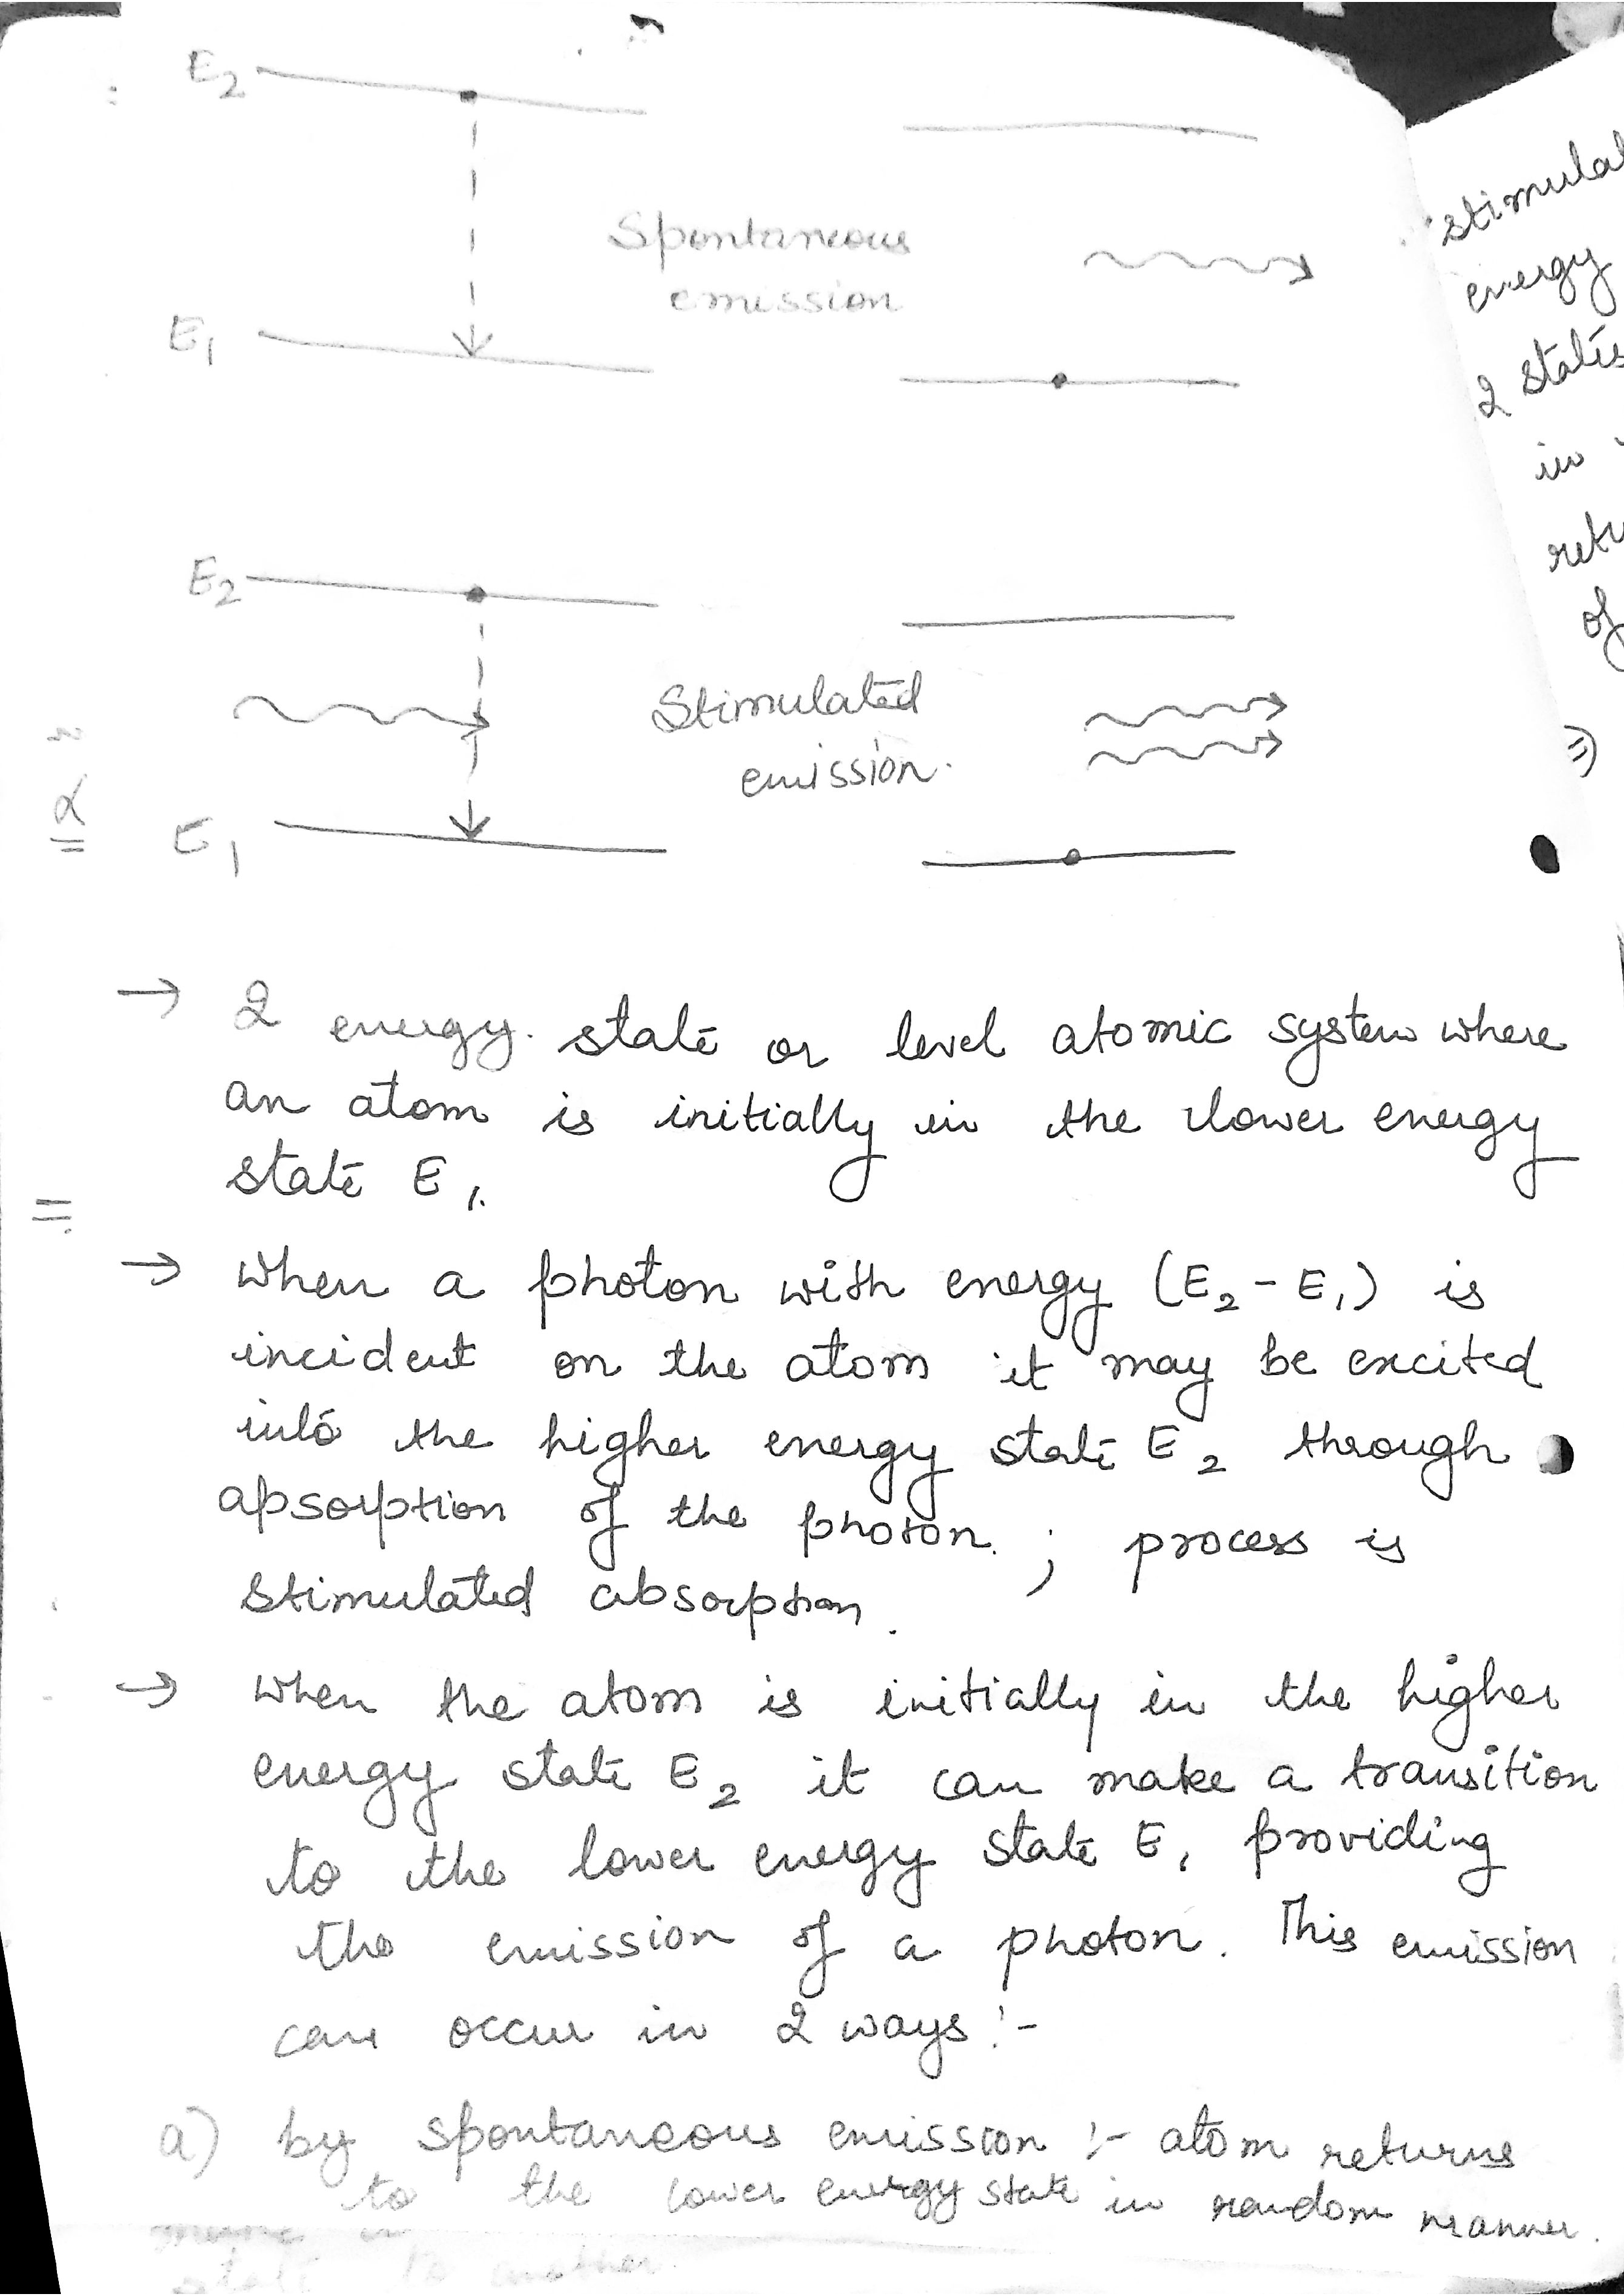 E2
Spontaneous
emission
E1
E2
Stimulated
emission.
α
E1
→ 2 energy. state or level atomic system where
an atom is initially in the lower energy
state E1.
=
→ when a photon with energy (E2 - E1) is
incident on the atom it may be excited
into the higher energy state E2 through
apsorption of the photon. ; process is
stimulated absorption.
→ when the atom is initially in the higher
energy state E2 it can make a transition
to the lower energy state E1 providing
the emission of a photon. This emission
can occur in 2 ways :-
a) by spontaneous emission :- atom returns
to the lower energy state in random manner.
to another.
energy
2 states
in
of
⇒